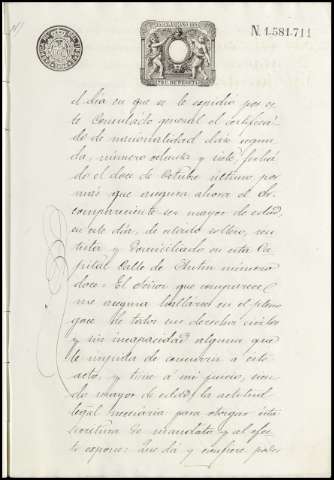 N. 1.581.711
el dia en que se le expidio por es
te Consulado general el Certifica
do de nacionalidad clase segun
da, número ochenta y siete, fecha
do el doce de Octubre último, por
mas que asegura ahora el Sr.
compareciente ser mayor de edad,
en este dia, de estado soltero, ren
tista y domiciliado en esta Ca
pital Calle de Antin número
doce: El Señor que comparece
me asegura hallarse en el pleno
goce de todos sus derechos civiles
y sin incapacidad alguna que
le impida de concurrir a este
acto, y tiene á mi juicio, sien
do mayor de edad, la aptitud
legal necesaria para otorgar esta
escritura de mandato, y al efec
to expone: Que dá y confiere poder